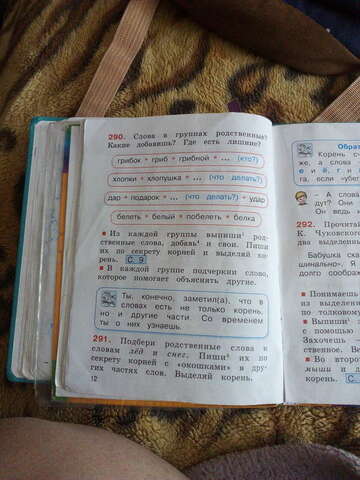 290. Слова в группах родственные?
Какие добавишь? Где есть лишние?
грибок • гриб • грибной • ... (кто?)
хлопки • хлопушка • ... (что делать?)
дар • подарок • ... (что делать?) • удар
белеть • белый • побелеть • белка
▪ Из каждой группы выпиши¹ род-
ственные слова, добавь¹ и свои. Пиши
их по секрету корней и выделяй ко-
рень. С. 9
▪ В каждой группе подчеркни слово,
которое помогает объяснить другие.
Ты, конечно, заметил(а), что в
словах есть не только корень,
но и другие части. Со временем
ты о них узнаешь.
291. Подбери родственные слова к
словам лёд и снег. Пиши¹ их по
секрету корней с «окошками» в дру-
гих частях слов. Выделяй корень.
12
Обрат
Корень сч
же, а слова
е и ё, г и
га, если «убег
– А слова
дут? Они
Он ведь
292. Прочитай
К. Чуковского
два выделенны
Бабушка ска
шинально». Я
долго сообража
▪ Понимаешь
из выделенн
по толковому
▪ Выпиши¹
с помощью
Захочешь
ственное. Ве
▪ Во второ
мыши и д
корень. С.